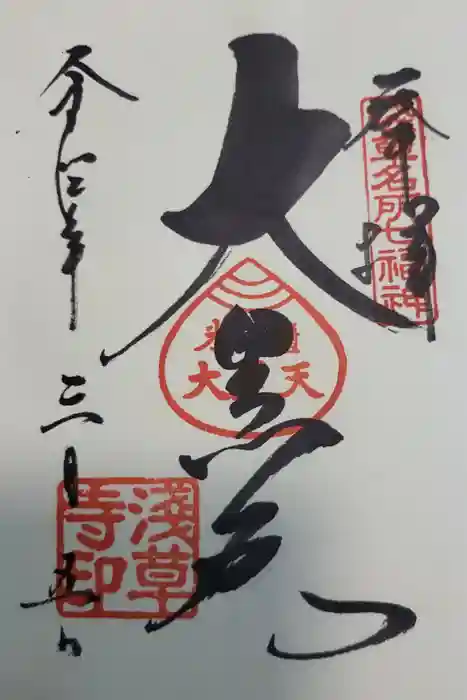 奉拝
浅草名所七福神
大黒天
大 天
令和 年
三月五日
淺草
寺印